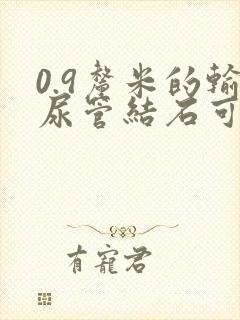 0.9釐米的輸
尿管結石可
有寵君